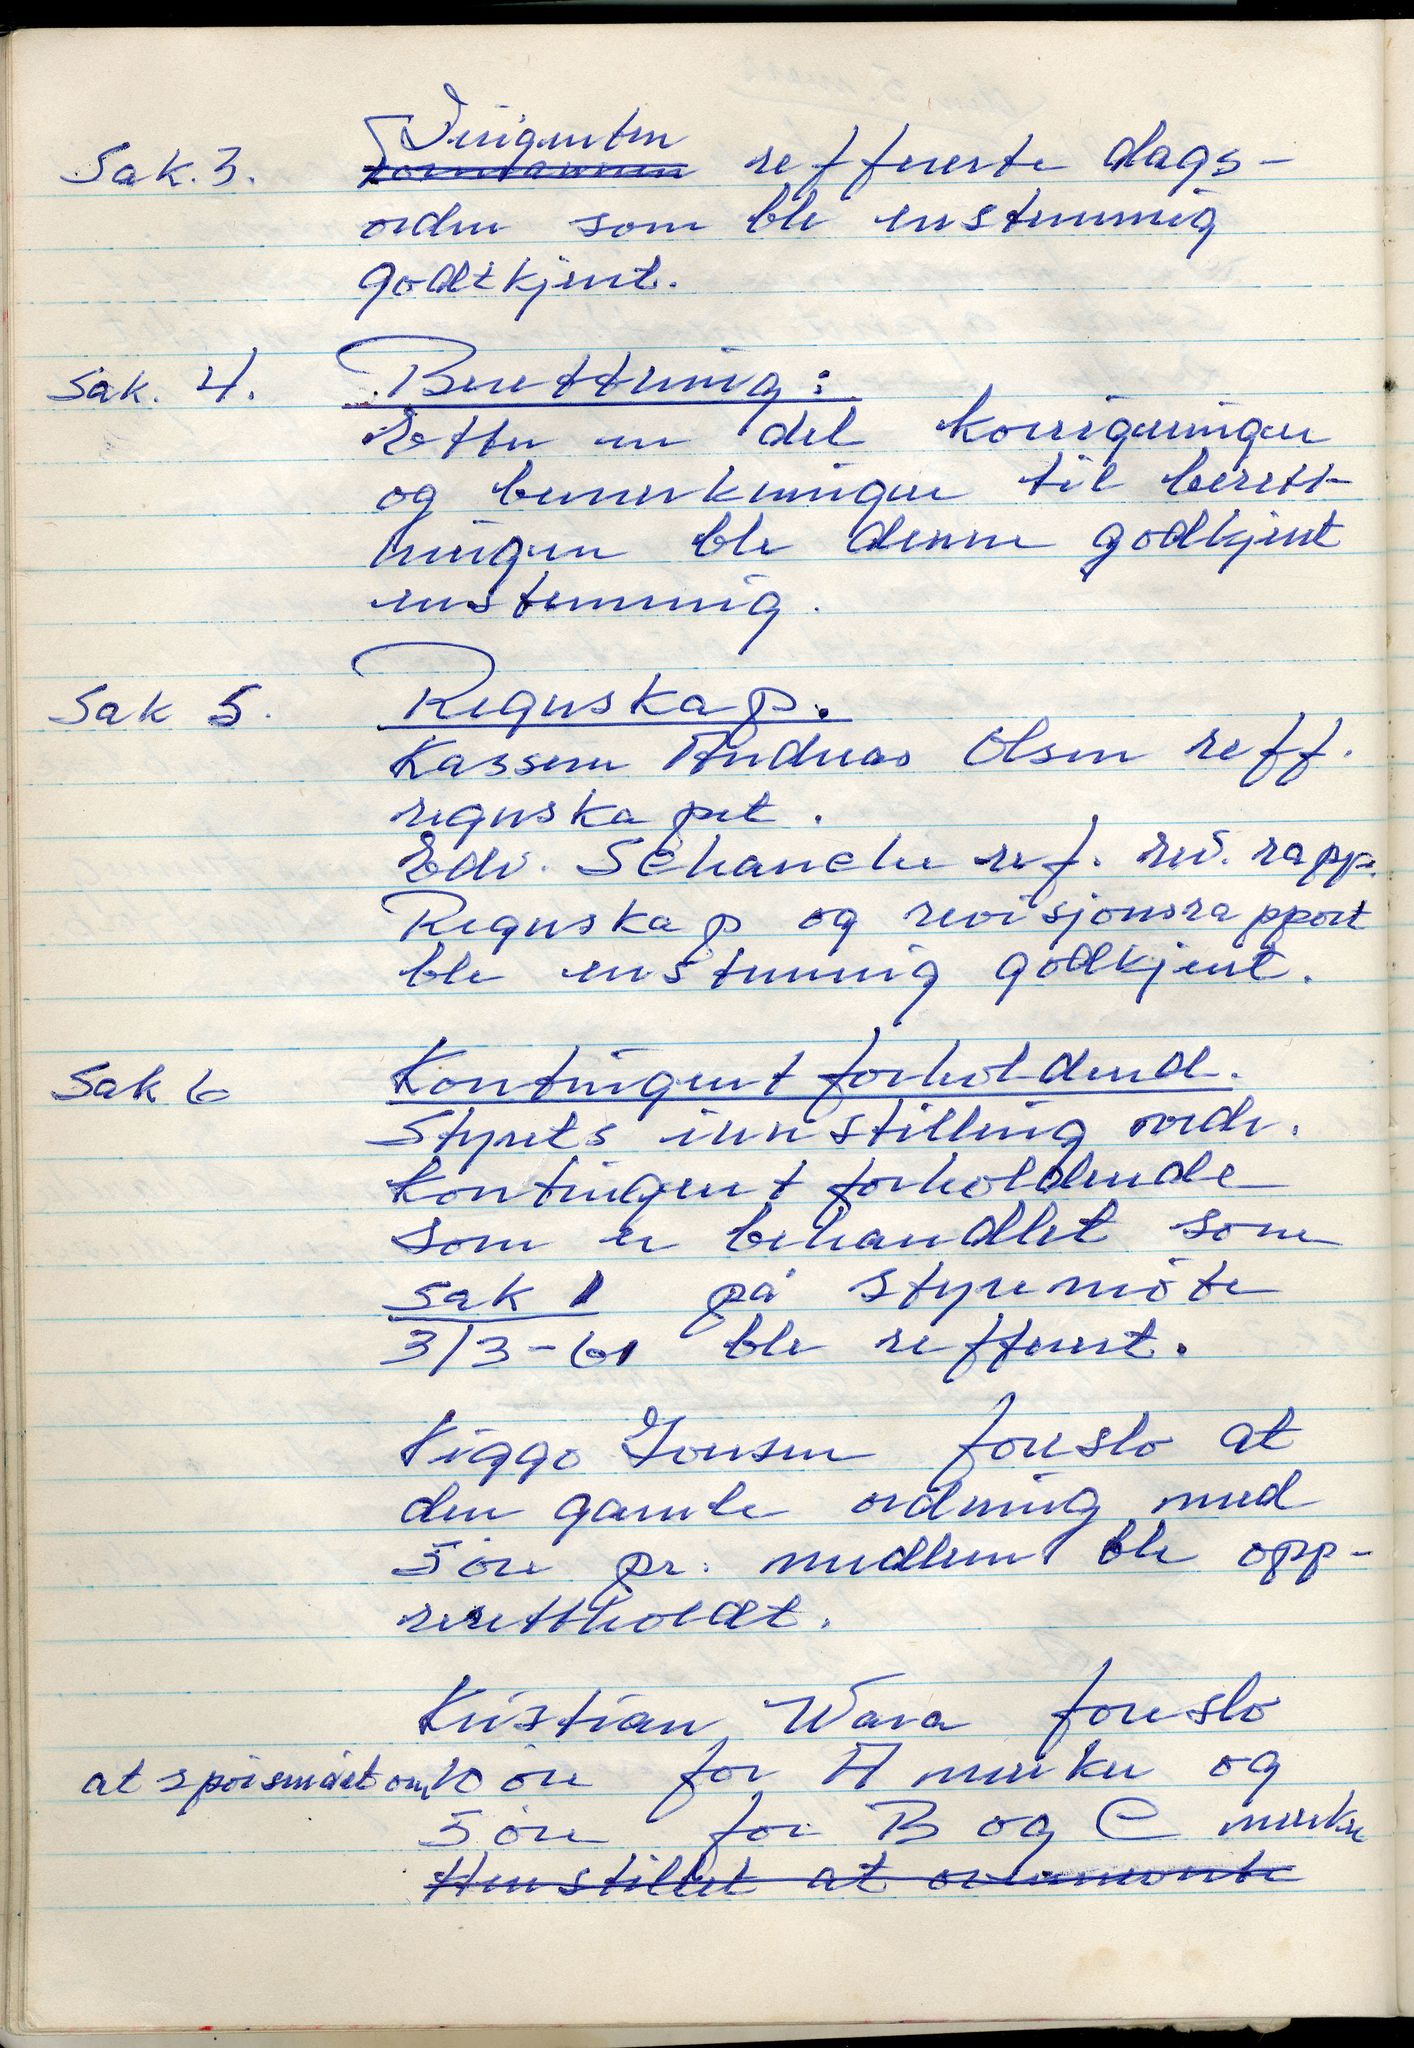 Dirigenten
Sak. 3. ~~formannen~~ refferete dags-
orden som ble enstemmig
godtkjent.
Sak. 4. Berettning:
Etter en del korrigeringer
og bemerkninger til berett-
ningen ble denne godkjent
enstemmig.
Sak 5. Regnskap.
Kassern Andreas Olsen reff.
regnskapet.
Edv. Schanche ref. rev. rapp.
Regnskap og revisjonsrapport
ble enstemmig godkjent.
Sak 6 Kontingent forholdend.
Styrets innstilling vedr.
Kontingent forholdende
som er behandlet som
sak 1 på styremöte
3/3-61 ble refferert.
Viggo Jonsen foreslo at
den gamle ordning med
5 öre pr. medlem ble opp-
rerettholdt.
Kristian Wara foreslo
at spörsmålet om 10 öre for A merker og
5 öre for B og C merker
~~Henstillet at ovennevnte~~